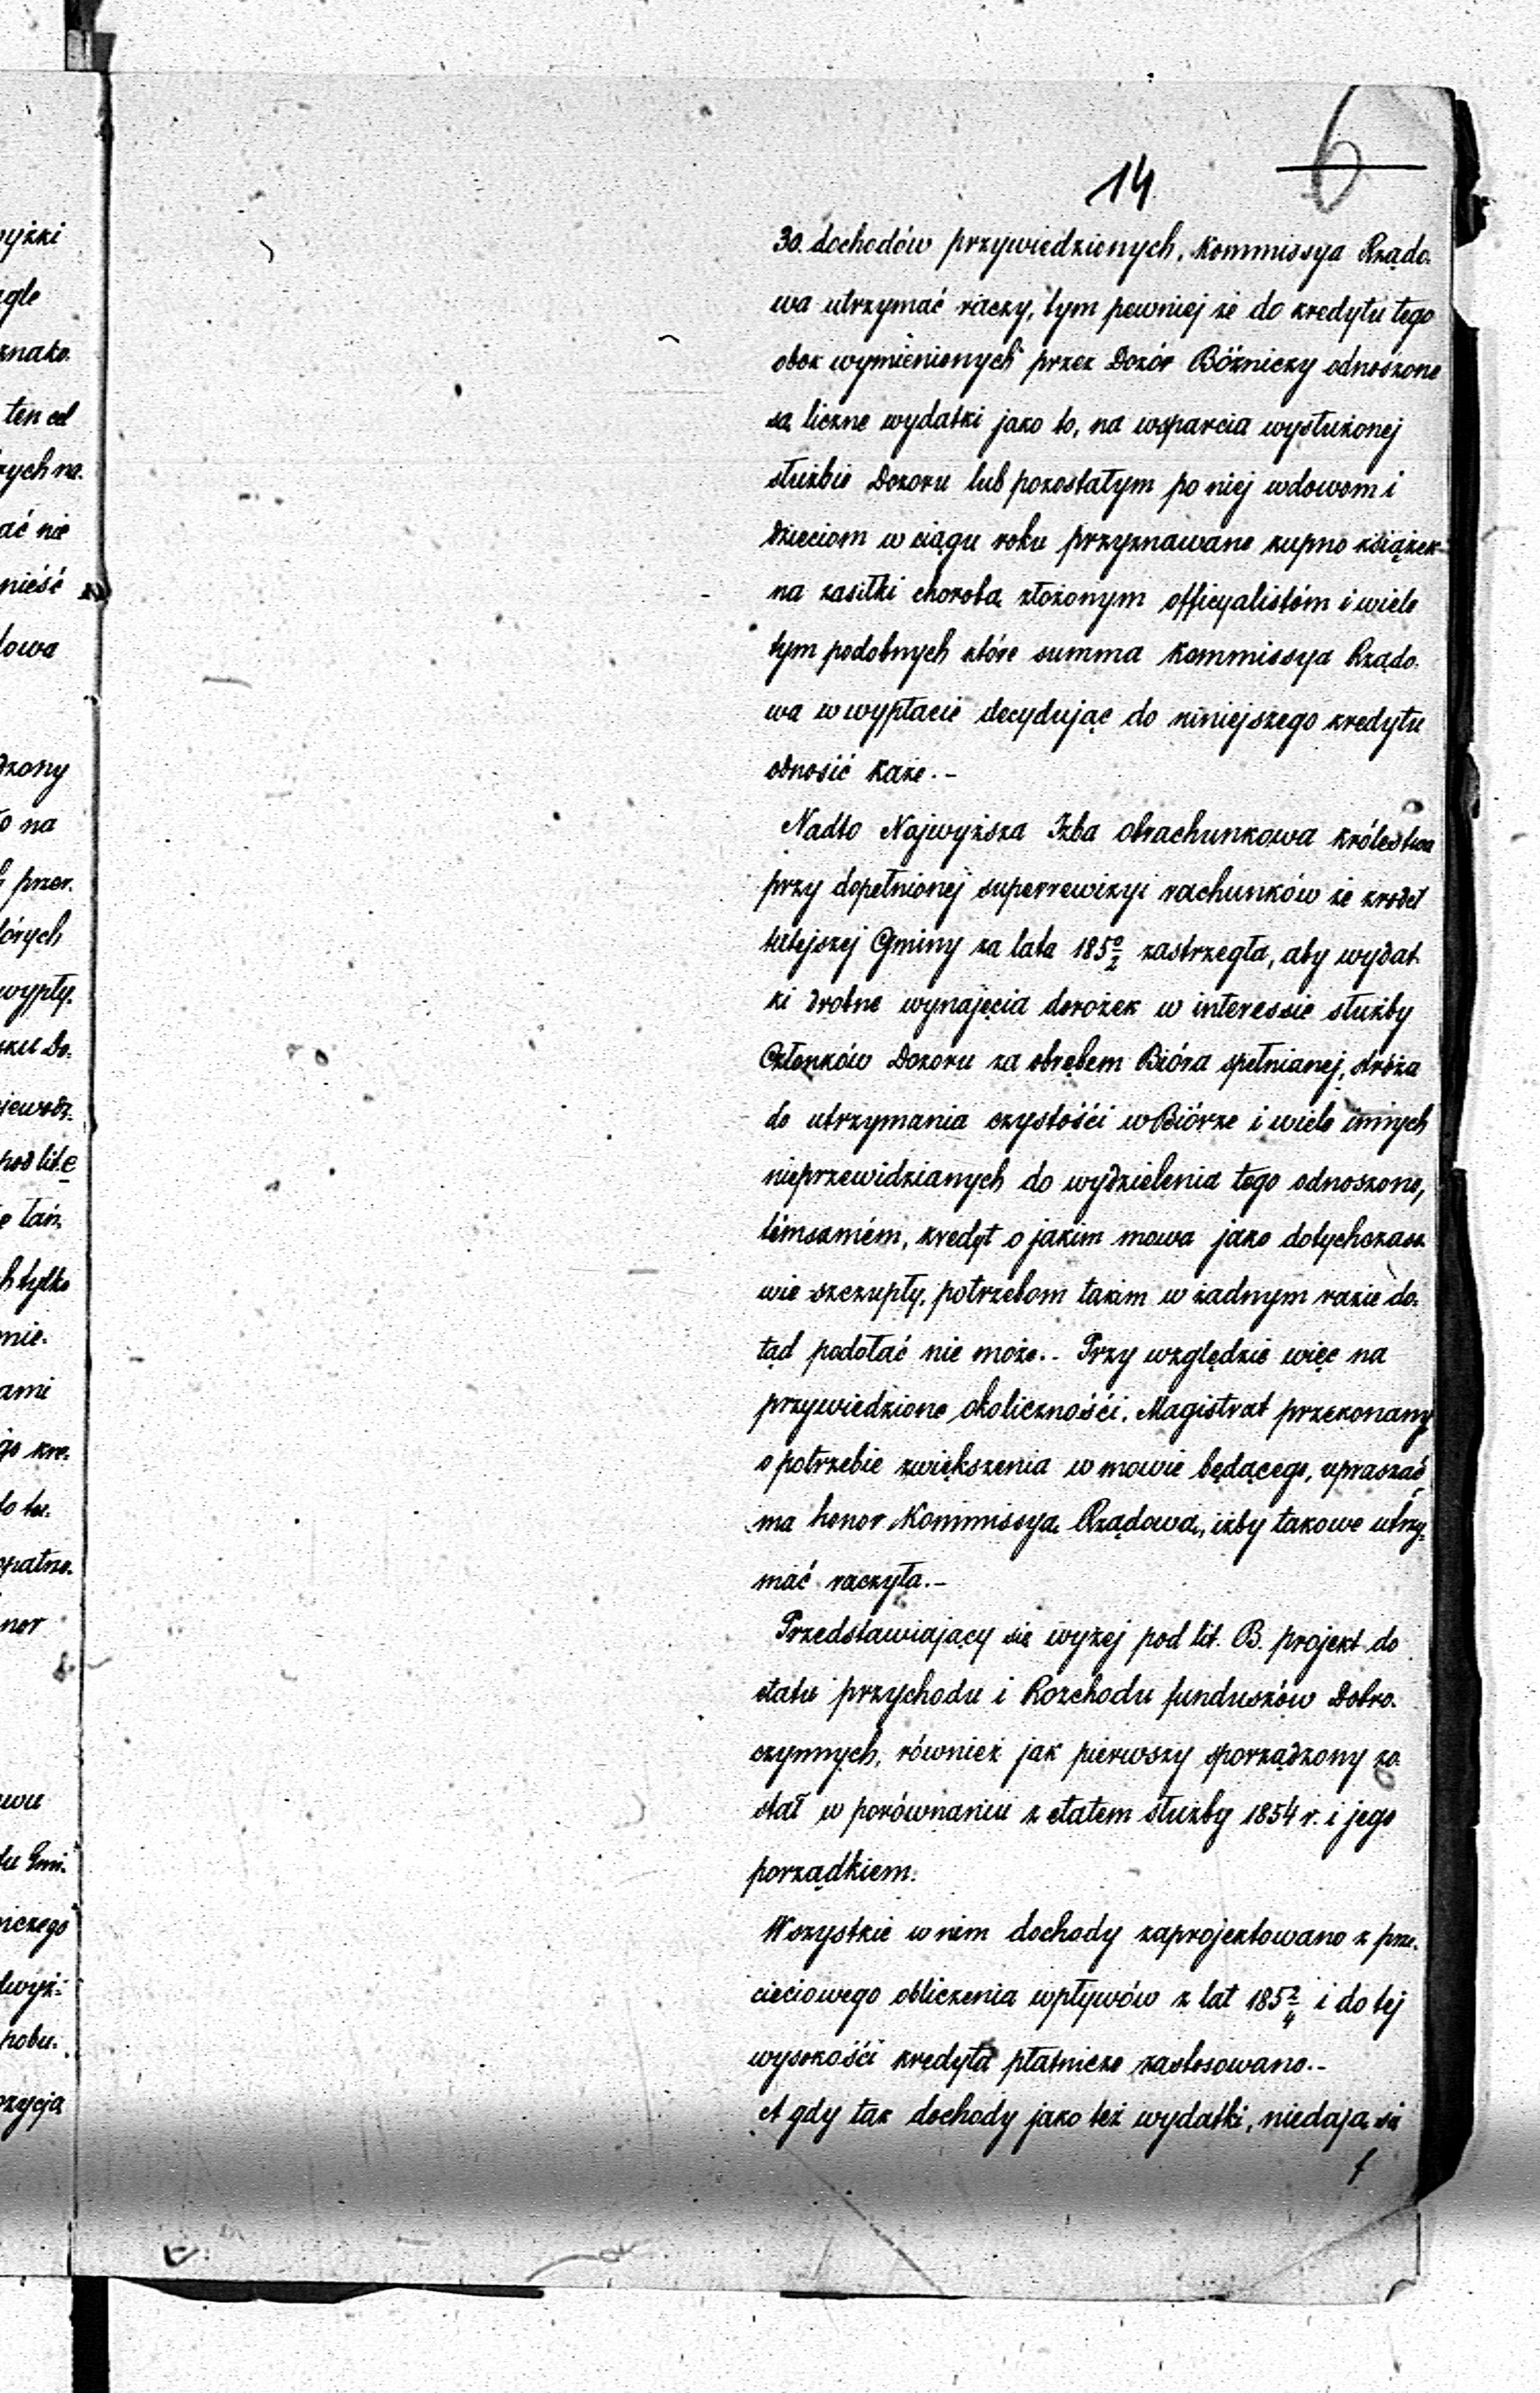 14
6
30. dochodów przywiedzionych, Kommissya Rządo.
wa utrzymać raczy, tym pewniej że do kredytu tego
obok wymienionych przez Dozór Bóżniczy odnoszone
są liczne wydatki jako to, na wsparcia wysłużonej
służbie Dozoru lub pozostałym po niej wdowom i
dzieciom w ciągu roku przyznawane kupno książek
na zasiłki chorobą złożonym officyalistóm i wiele
tym podobnych które summa Kommissya Rządo.
wa w wypłacie decydując do niniejszego kredytu
odnosić każe.-
Nadto Najwyższa Izba obrachunkowa królestwa
przy dopełnionej superrewizyi rachunków ze źrodeł
tutejszej Gminy za lata 185 0/2 zastrzegła, aby wydat.
ki drobne wynajęcia dorożek w interessie służby
Członków Dozoru za obrębem Bióra spełnianej, stróża
do utrzymania czystośći w Biórze i wiele innych
nieprzewidzianych do wydzielenia tego odnoszono,
témsamém, kredyt o jakim mowa jako dotychczaso
wie szczupły, potrzebom takim w żadnym razie do.
tąd podołać nie może.- Przy względzie więc na
przywiedzione okolicznośći, Magistrat przekonany
o potrzebie zwiększenia w mowie będącego, upraszać
ma honor Kommissyą Rządową, iżby takowe utrzy-
mać raczyła.-
Przedstawiający się wyżej pod lit. B. projekt do
etatu przychodu i Rozchodu funduszów Dobro.
czynnych, również jak pierwszy sporządzony zo.
stał w porównaniu z etatem służby 1854 r. i jego
porządkiem.
Wszystkie w nim dochody zaprojektowano z prze.
cięciowego obliczenia wpływów z lat 185 2/4 i do tej
wysokośći kredyta płatnicze zastosowano.-
A gdy tak dochody jako też wydatki, niedają się